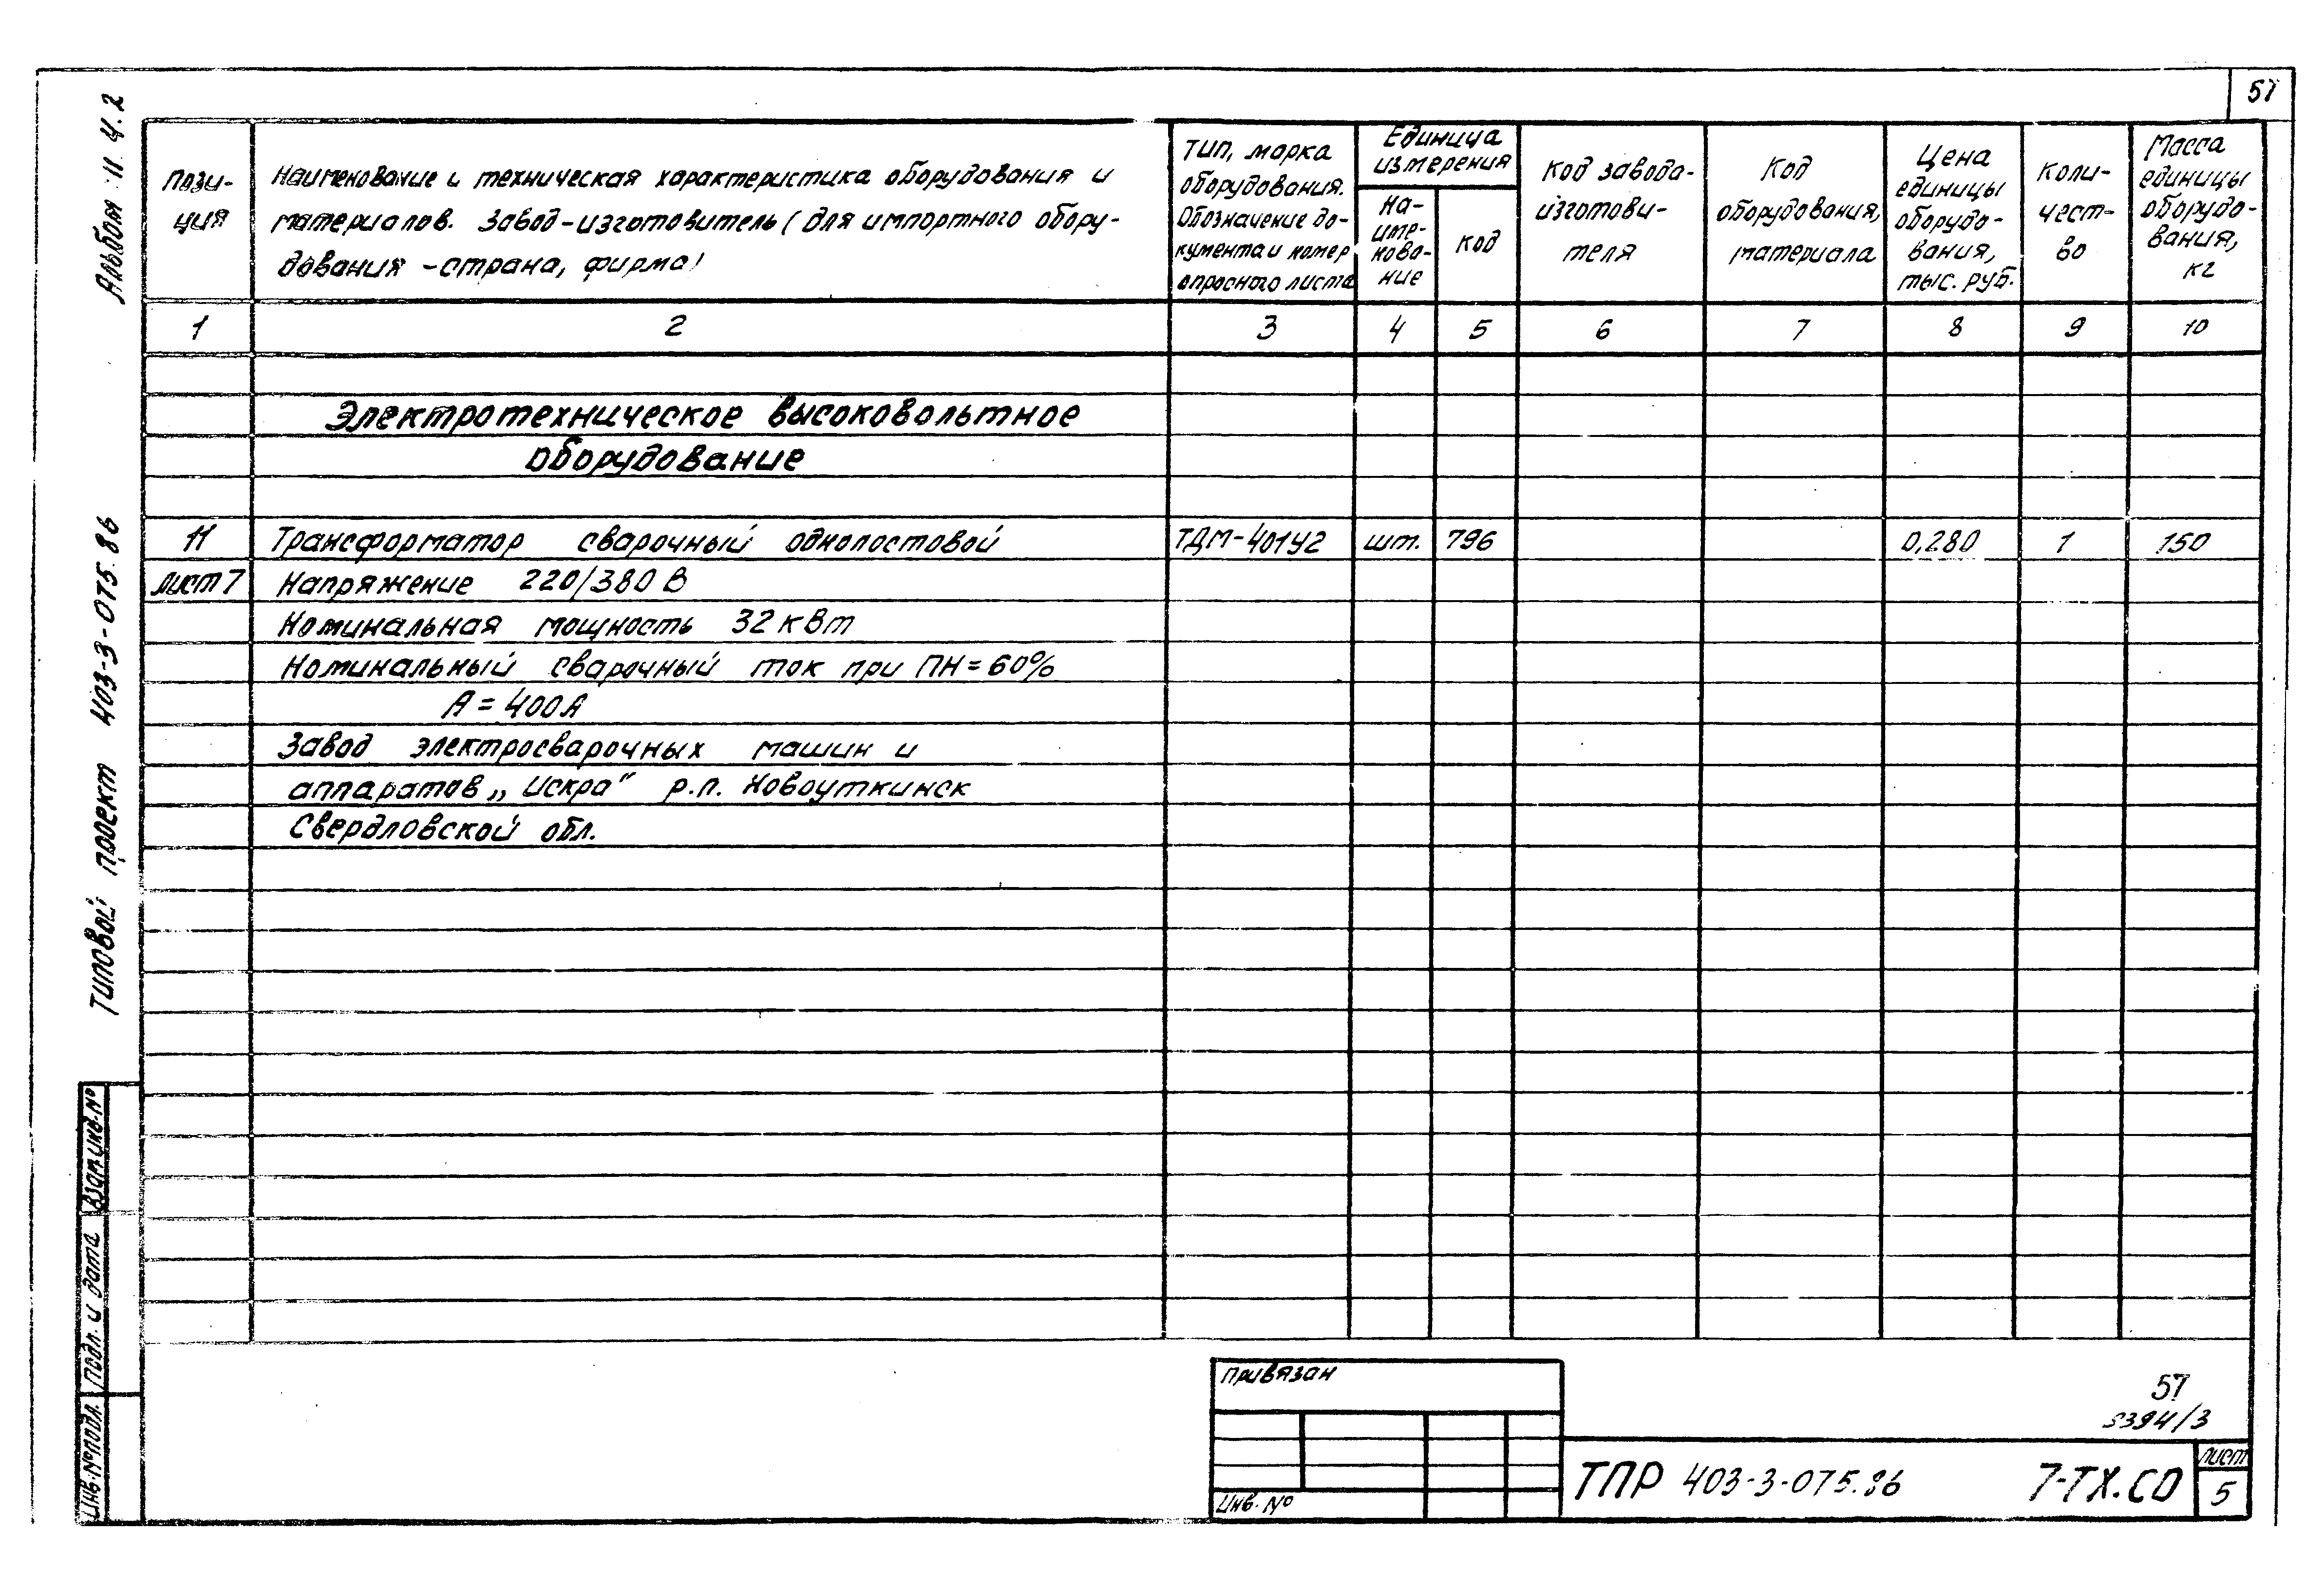 57
Альбом 11 ч.2
Типовой проект 403-3-075.86
Пози-
ция
Наименование и техническая характеристика оборудования и
материалов. Завод-изготовитель (для импортного обору-
дования - страна, фирма)
Тип, марка
оборудования.
Обозначение до-
кумента и номер
опросного листа
Единица
измерения
На-
име-
нова-
ние
код
Код завода-
изготови-
теля
Код
оборудования,
материала
Цена
единицы
оборудо-
вания,
тыс. руб.
Коли-
чест-
во
Масса
единицы
оборудо-
вания,
кг
1 2 3 4 5 6 7 8 9 10
Электротехническое высоковольтное
оборудование
11 Трансформатор сварочный однопостовой ТДМ-401У2 шт. 796 0,280 1 150
лист 7 Напряжение 220/380 В
Номинальная мощность 32 кВт
Номинальный сварочный ток при ПН=60%
А=400А
Завод электросварочных машин и
аппаратов „Искра" р.п. Новоуткинск
Свердловской обл.
Взам.инв.№
Подп. и дата
Инв.№подл.
Привязан
Инв. №
57
5394/3
ТПР 403-3-075.86 7-ТХ.СО
лист
5